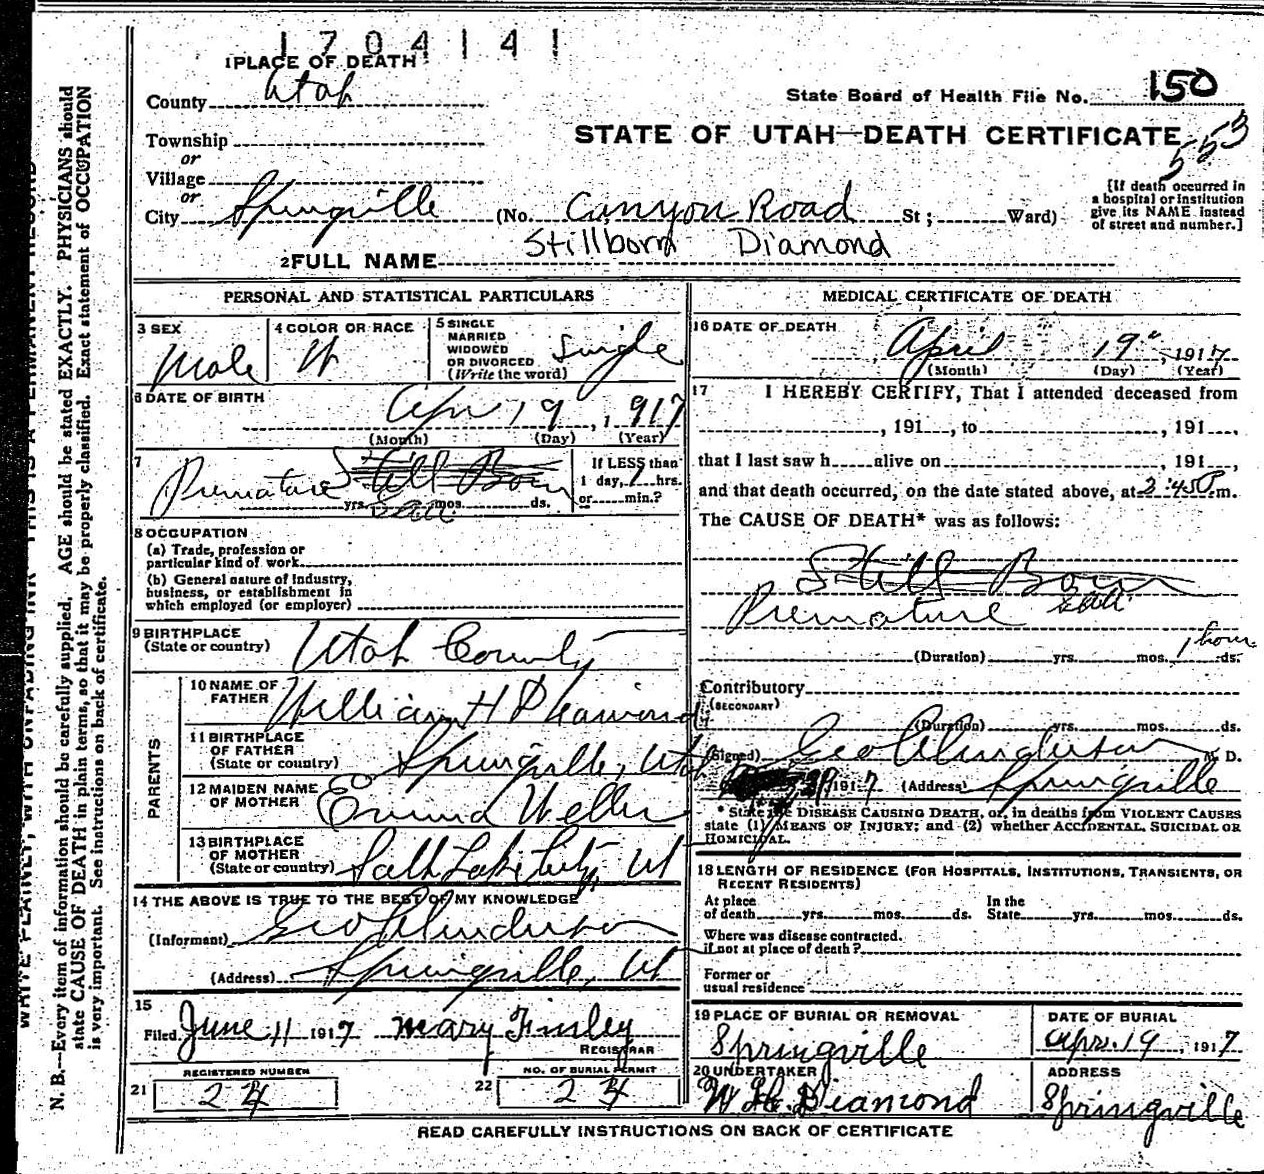 1704141
1 PLACE OF DEATH
County Utah
State Board of Health File No. 150
Township
STATE OF UTAH—DEATH CERTIFICATE
553
or
Village
or
City Springville (No. Canyon Road St; Ward)
[If death occurred in
a hospital or institution
give its NAME instead
of street and number.]
Stillborn Diamond
2 FULL NAME
PERSONAL AND STATISTICAL PARTICULARS
3 SEX
Male
4 COLOR OR RACE
W
5 SINGLE
MARRIED
WIDOWED
OR DIVORCED
(Write the word)
Single
6 DATE OF BIRTH
Apr 19, 1917
(Month) (Day) (Year)
7
Premature Still Born
yrs. mos. ds.
If LESS than
1 day, 1 hrs.
or min.?
8 OCCUPATION
(a) Trade, profession or
particular kind of work
(b) General nature of Industry,
business, or establishment in
which employed (or employer)
9 BIRTHPLACE
(State or country)
Utah County
PARENTS
10 NAME OF
FATHER
William H Diamond
11 BIRTHPLACE
OF FATHER
(State or country)
Springville, Utah
12 MAIDEN NAME
OF MOTHER
Emma Weller
13 BIRTHPLACE
OF MOTHER
(State or country)
Salt Lake City, Ut
14 THE ABOVE IS TRUE TO THE BEST OF MY KNOWLEDGE
(Informant) Geo A Anderson
(Address) Springville, Ut
15
Filed June 11 1917 Mary Finley
REGISTRAR
21
REGISTERED NUMBER
24
22
NO. OF BURIAL PERMIT
24
MEDICAL CERTIFICATE OF DEATH
16 DATE OF DEATH
April 19", 1917
(Month) (Day) (Year)
17 I HEREBY CERTIFY, That I attended deceased from
, 191 , to , 191 ,
that I last saw h alive on , 191 ,
and that death occurred, on the date stated above, at 2:45 P m.
The CAUSE OF DEATH* was as follows:
Still Born
Premature
1 hour
(Duration) yrs. mos. ds.
Contributory
(SECONDARY)
(Duration) yrs. mos. ds.
(Signed) Geo A Anderson M. D.
1917 (Address) Springville
* State the DISEASE CAUSING DEATH, or, in deaths from VIOLENT CAUSES
state (1) MEANS OF INJURY; and (2) whether ACCIDENTAL, SUICIDAL OR
HOMICIDAL.
18 LENGTH OF RESIDENCE (FOR HOSPITALS, INSTITUTIONS, TRANSIENTS, OR
RECENT RESIDENTS)
At place
of death yrs. mos. ds.
In the
State yrs. mos. ds.
Where was disease contracted.
if not at place of death?
Former or
usual residence
19 PLACE OF BURIAL OR REMOVAL
Springville
DATE OF BURIAL
Apr. 19, 1917
20 UNDERTAKER
W H. Diamond
ADDRESS
Springville
READ CAREFULLY INSTRUCTIONS ON BACK OF CERTIFICATE
WRITE PLAINLY, WITH UNFADING INK—THIS IS A PERMANENT RECORD
N. B.—Every item of information should be carefully supplied. AGE should be stated EXACTLY. PHYSICIANS should
state CAUSE OF DEATH in plain terms, so that it may be properly classified. Exact statement of OCCUPATION
is very important. See instructions on back of certificate.